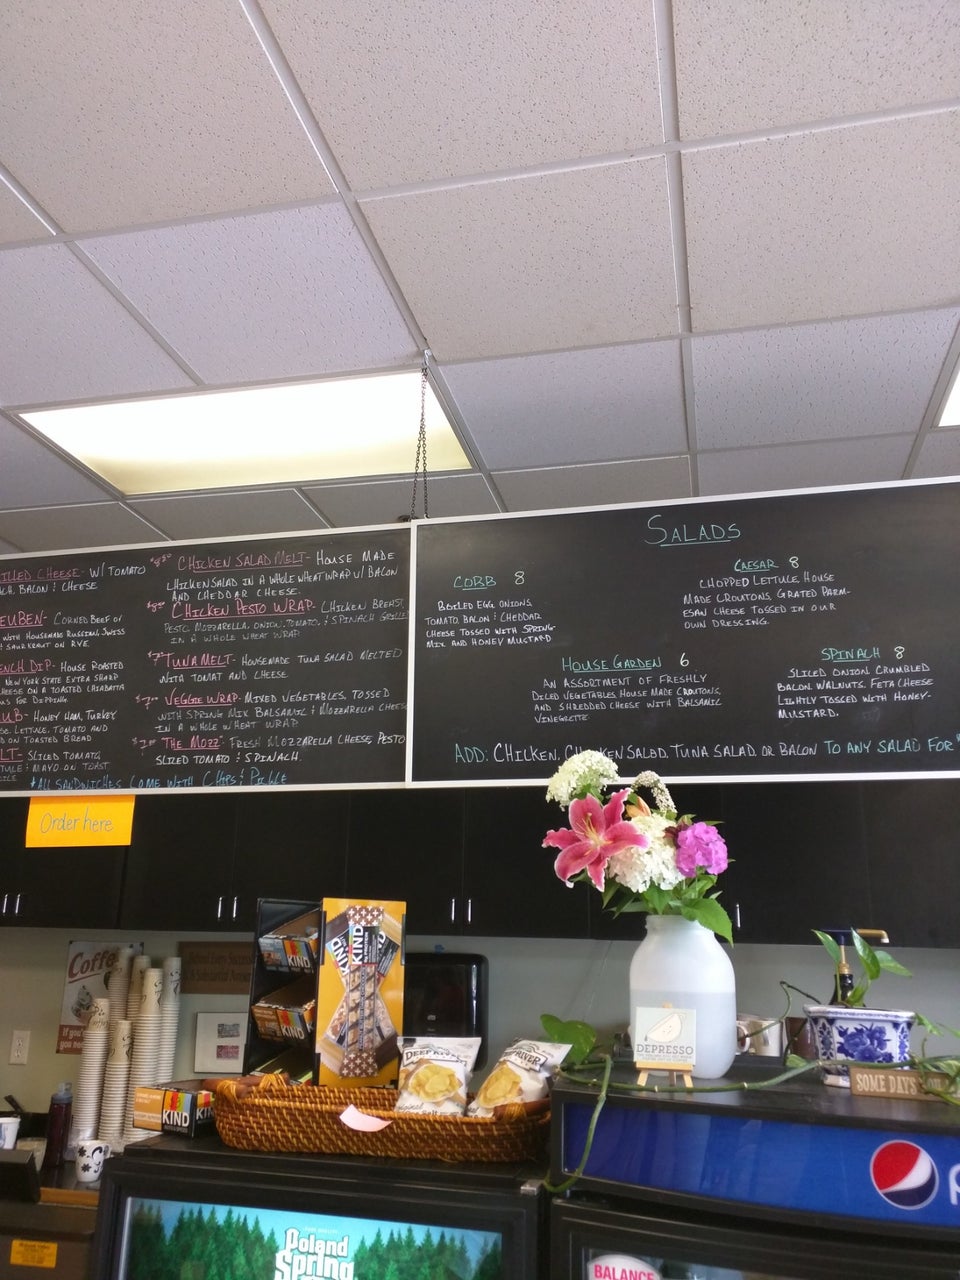 ILLED CHEESE - W/ TOMATO
BACON & CHEESE
EUBEN - CORNED BEEF OR
WITH HOUSEMADE RUSSIAN, SWISS
SAURKRAUT ON RYE.
ENCH DIP - HOUSE ROASTED
NEW YORK STATE EXTRA SHARP
CHEESE ON A TOASTED CIABATTA
FOR DIPPING.
UB - HONEY HAM, TURKEY
LETTUCE, TOMATO AND
ON TOASTED BREAD
LT - SLICED TOMATO,
& MAYO ON TOAST
CHICKEN SALAD MELT - HOUSE MADE
CHICKEN SALAD IN A WHOLE WHEAT WRAP W/ BACON
AND CHEDDAR CHEESE.
CHICKEN PESTO WRAP - CHICKEN BREAST,
PESTO, MOZZARELLA, ONION, TOMATO, & SPINACH GRILLED
IN A WHOLE WHEAT WRAP
TUNA MELT - HOUSEMADE TUNA SALAD MELTED
WITH TOMAT AND CHEESE
VEGGIE WRAP - MIXED VEGETABLES, TOSSED
WITH SPRING MIX BALSAMIC & MOZZARELLA CHEESE
IN A WHOLE WHEAT WRAP
"THE MOZZ" FRESH MOZZARELLA CHEESE, PESTO
SLICED TOMATO & SPINACH.
*ALL SANDWICHES COME WITH CHIPS & PICKLE
SALADS
COBB 8
BOILED EGG, ONIONS,
TOMATO, BACON & CHEDDAR
CHEESE TOSSED WITH SPRING-
MIX AND HONEY MUSTARD
CAESAR 8
CHOPPED LETTUCE, HOUSE
MADE CROUTONS, GRATED PARM-
ESAN CHEESE TOSSED IN OUR
OWN DRESSING.
HOUSE GARDEN 6
AN ASSORTMENT OF FRESHLY
DICED VEGETABLES, HOUSE MADE CROUTONS,
AND SHREDDED CHEESE WITH BALSAMIC
VINEGRETTE
SPINACH 8
SLICED ONION, CRUMBLED
BACON, WALNUTS, FETA CHEESE
LIGHTLY TOSSED WITH HONEY-
MUSTARD.
ADD: CHICKEN, CHICKEN SALAD, TUNA SALAD OR BACON TO ANY SALAD FOR $
Order here
Coffe
If you
KIND
KIND
KIND
KIND
KIND
KIND
DEEP RIVER
RIVER
DEPRESSO
SOME DAYS YOU
Poland
Spring
BALANCE